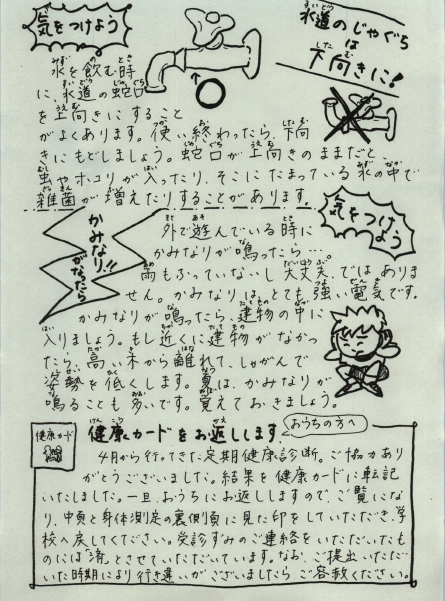 気をつけよう
水道のじゃぐち
は
下向きに!
水を飲む時
に、水道の蛇口
を上向きにすること
がよくあります。使い終わったら、下向
きにもどしましょう。蛇口が上向きのままだと、
虫やホコリが入ったり、そこにたまっている水の中で
雑菌が増えたりすることがあります。
気をつけ
よう
かみなり!!
がなったら
外で遊んでいる時に
かみなりが鳴ったら…
雨もふっていないし大丈夫、ではありま
せん。かみなりは、とても強い電気です。
かみなりが鳴ったら、建物の中に
入りましょう。もし近くに建物がなかっ
たら、高い木から離れて、しゃがんで
姿勢を低くします。夏は、かみなりが
鳴ることも多いです。覚えておきましょう。
健康カード
健康カードをお返しします
おうちの方へ
4月から行ってきた定期健康診断。ご協力あり
がとうございました。結果を健康カードに転記
いたしました。一旦、おうちにお返ししますので、ご覧にな
り、中頁と身体測定の裏側頁に見た印をしていただき、学
校へ戻してください。受診ずみのご連絡をいただいたも
のには「済」とさせていただいています。なお、ご提出いただ
いた時期により行き違いがございましたらご容赦ください。